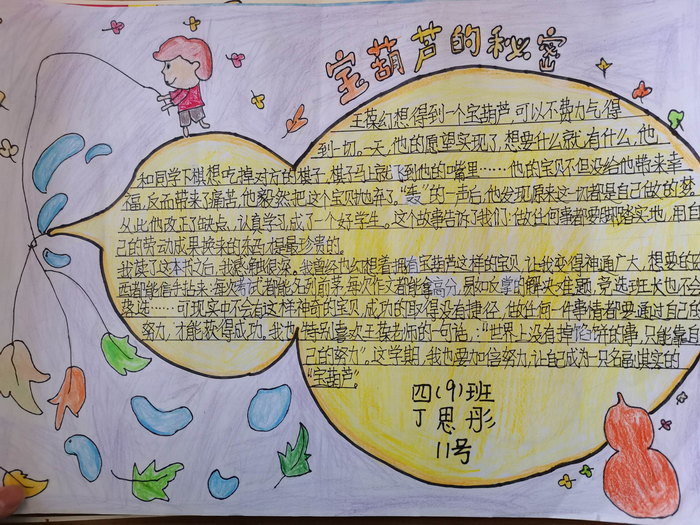 宝葫芦的秘密
王葆幻想得到一个宝葫芦,可以不费力气,得
到一切。一天,他的愿望实现了,想要什么就有什么,他
和同学下棋想吃掉对方的棋子,棋子马上就飞到他的口嘴里……他的宝贝不但没给他带来幸
福,反而带来了痛苦,他毅然把这个宝贝抛弃了。“轰”的一声后,他发现原来这一切都是自己做的梦
从此他改正了缺点,认真学习,成了一个好学生。这个故事告诉了我们:做任何事都要脚踏实地,用自
己的劳动成果换来的东西,才是最珍贵的。
我读了这本书之后,我感触很深。我曾经也幻想着拥有宝葫芦这样的宝贝,让我变得神通广大,想要的东
西都能信手拈来:每次考试都能名列前茅,每次作文都能拿高分,易如反掌的解决难题,竞选班长也不会
落选……可现实中不会有这样神奇的宝贝,成功的取得没有捷径,做任何一件事情都要通过自己的
努力,才能获得成功。我也特别喜欢王葆老师的一句话:“世界上没有掉馅饼的事,只能靠自
己的努力”。这学期,我也要加倍努力,让自己成为一只名副其实的
“宝葫芦”。
四(9)班
丁思彤
11号